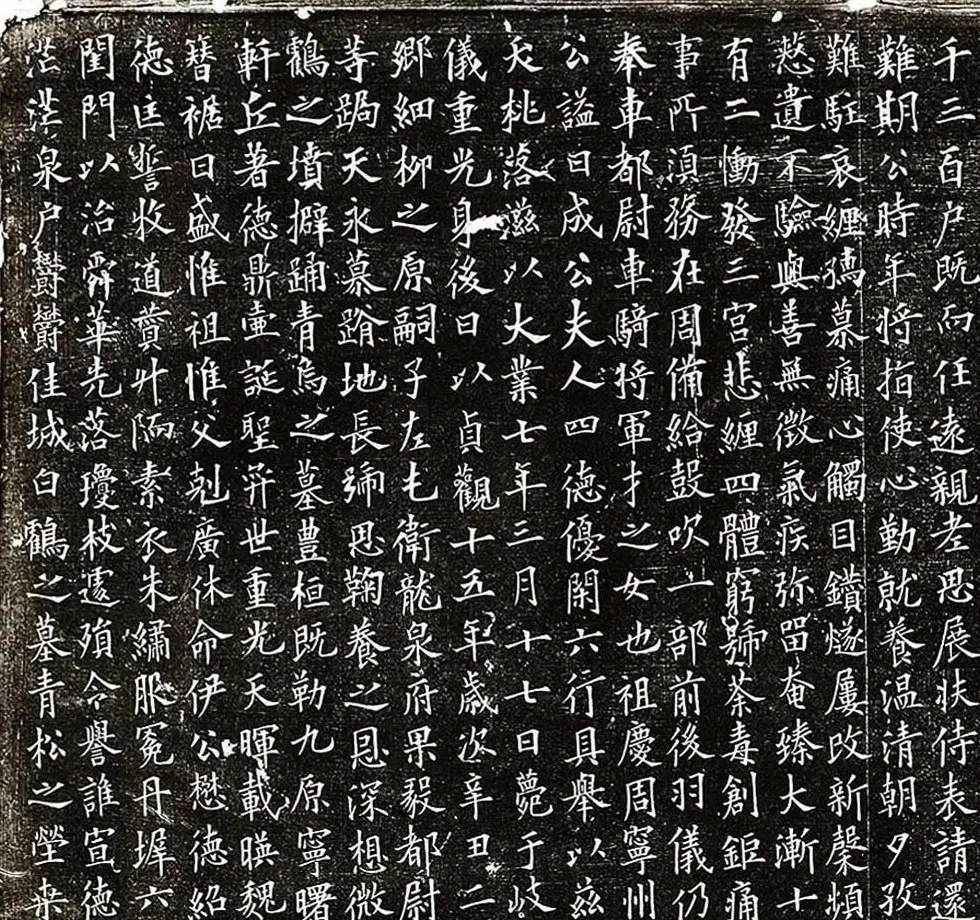 千三百户既向任遠親老思展状侍表請還
難期公時年将指使心勤就養温清朝夕孜
難駐哀纏孺慕痛心觸目鑽燧屢改新縠頻
慭遺不驗與善無徵氣疾弥留奄臻大漸十
有二慟發三宫悲纏四體窮號荼毒創鉅痛
事所湏務在周備給鼓吹一部前後羽儀仍
奉車都尉車騎将軍才之女也祖慶周寧州
公謚曰成公夫人四德優閑六行具舉以兹
夭桃落滋以大業七年三月十七日薨于岐
儀重光身後日以貞觀十五年歲次辛丑二
鄉細柳之原嗣子左屯衛龍泉府果毅都尉
等跼天永慕蹐地長號思鞠養之恩深想微
鶴之墳擗踊青烏之墓豊桓既勒九原寧曙
軒丘著德鼎壷誕聖弈世重光天暉載暎魏
簪裾日盛惟祖惟父剋廣休命伊公懋德紹
德匡誓收道賛升陑素衣朱繡服冕丹墀六
閨門以治舜華先落瓊枝遽殞令譽誰宣德
茫茫泉户鬱鬱佳城白鶴之墓青松之塋来